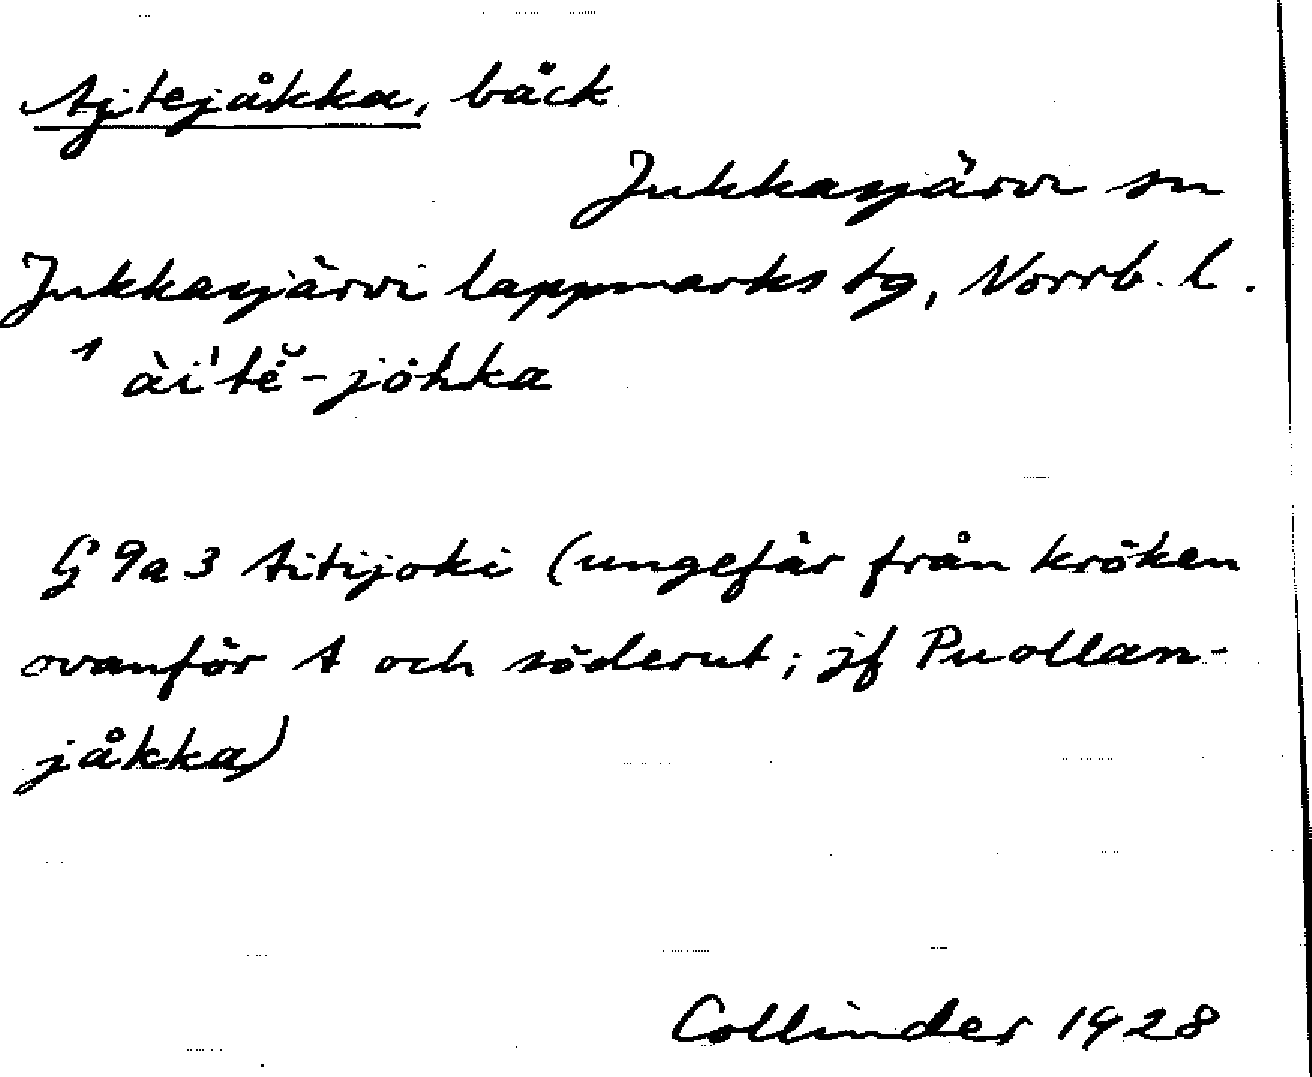 Ajtejåkka, bäck
Jukkasjärvi sn
Jukkasjärvi lappmarks tg, Norrb. l.
1 ài'tĕ-jöhka
G 9a3 Aitijoki (ungefär från kröken
ovanför A och söderut; jf Puollan-
jåkka)
Collinder 1928